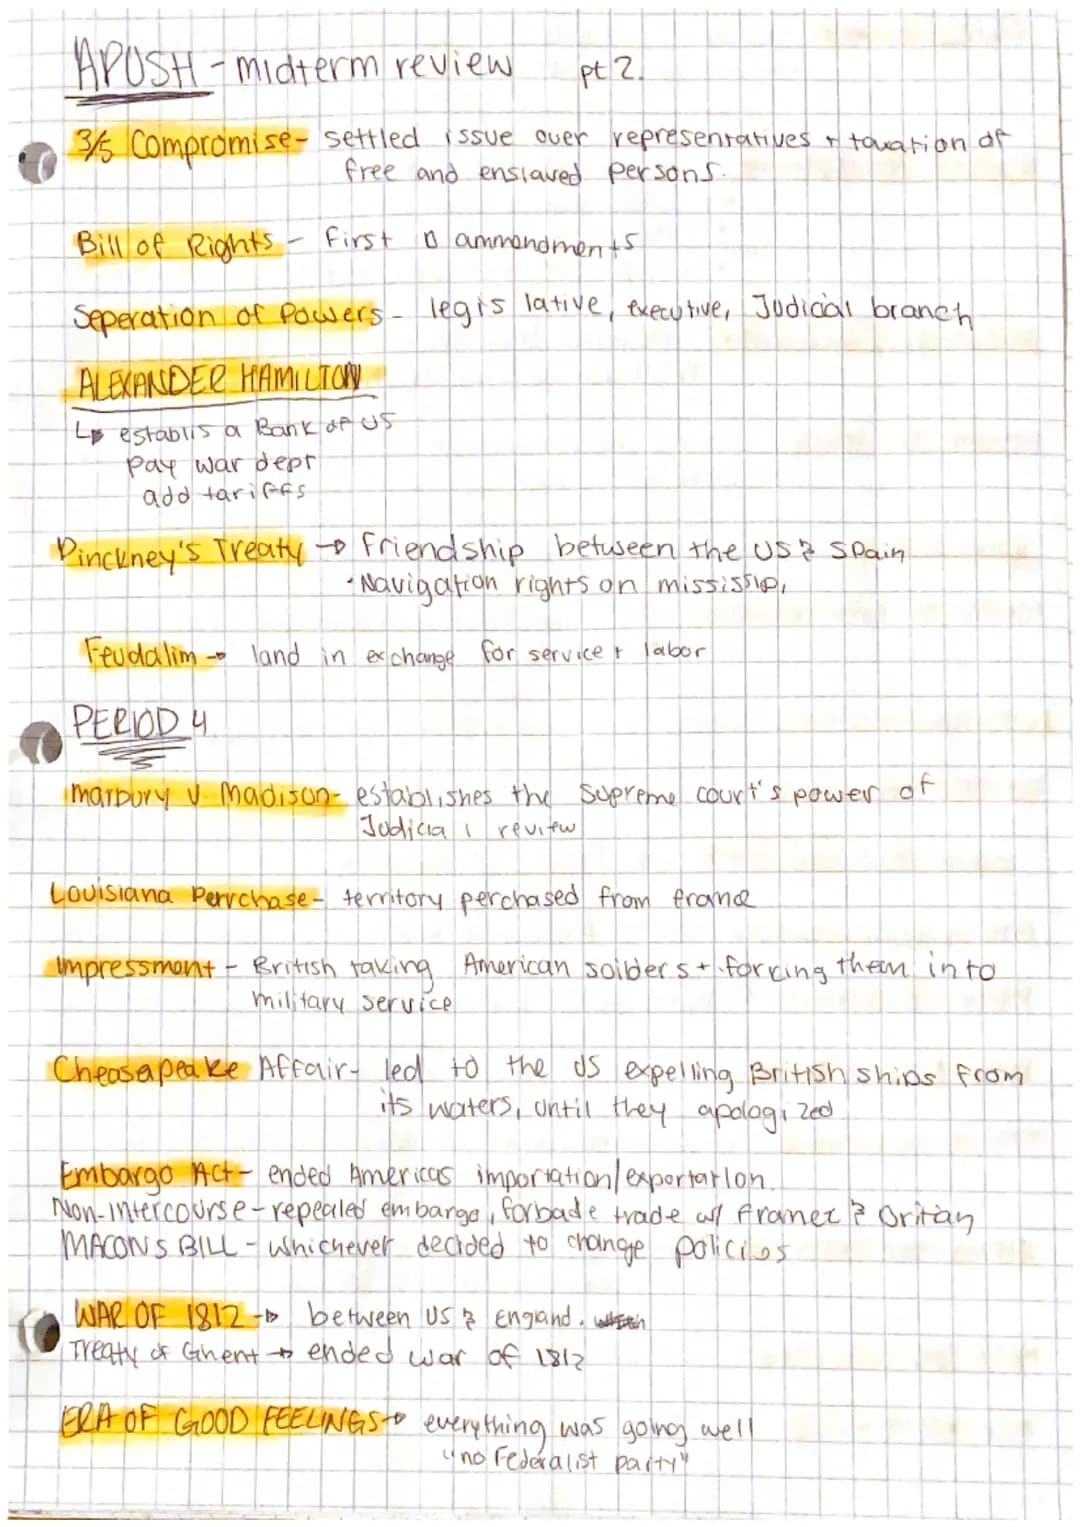 APUSH - midterm review pt 2.
3/5 Compromise- settled issue over representatives + taxation of
free and enslaved persons.
Bill of Rights - first 10 ammendments
Seperation of Powers - legislative, executive, Judicial branch
ALEXANDER HAMILTON
↳ establis a Bank of US
pay war dept
add tariffs
Pinckney's Treaty → Friendship between the US & Spain
• Navigation rights on mississipi
Feudalim → land in exchange for service + labor
PERIOD 4
marbury v Madison- establishes the Supreme court's power of
Judicial review
Louisiana Perrchase- territory perchased from france
Impressment - British taking American soilders + forcing them into
military service
Cheasapeake Affair- led to the US expelling British ships from
its waters, until they apologized
Embargo Act- ended Americas importation/exportation.
Non-Intercourse - repealed embargo, forbade trade w/ france & Britan
MACONS BILL - Whichever decided to change policies
WAR OF 1812 → between US & England.
Treaty of Ghent → ended war of 1812
ERA OF GOOD FEELINGS → everything was going well
"no Federalist party"